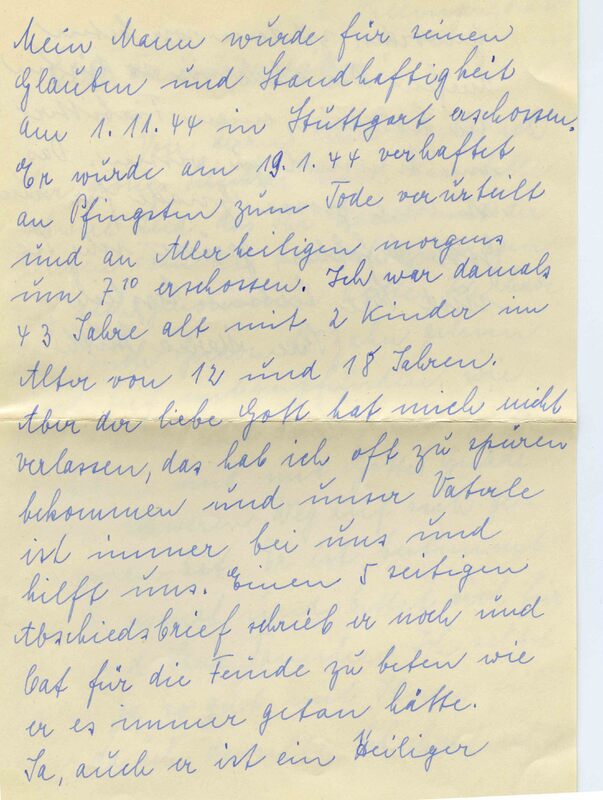 Mein Mann wurde für seinen
Glauben und Standhaftigkeit
am 1.11.44 in Stuttgart erschossen.
Er wurde am 19.1.44 verhaftet
an Pfingsten zum Tode verurteilt
und an Allerheiligen morgens
um 7¹⁰ erschossen. Ich war damals
43 Jahre alt mit 2 Kinder im
Alter von 12 und 18 Jahren.
Aber der liebe Gott hat mich nicht
verlassen, das hab ich oft zu spüren
bekommen und unser Vaterle
ist immer bei uns und
hilft uns. Einen 5 seitigen
Abschiedsbrief schrieb er noch und
bat für die Feinde zu beten wie
er es immer getan hätte.
Ja, auch er ist ein Heiliger